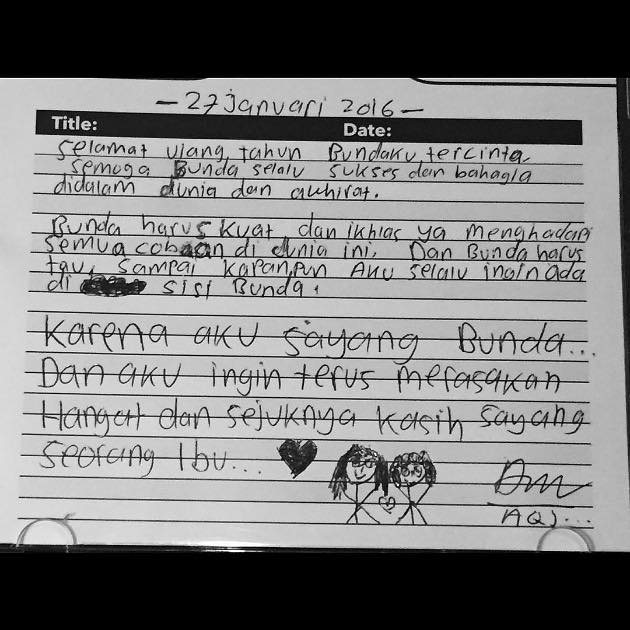 - 27 Januari 2016 -
Title: Date:
Selamat ulang tahun Bundaku tercinta
semoga Bunda selalu sukses dan bahagia
didalam dunia dan akhirat.
Bunda harus kuat dan ikhlas ya menghadapi
semua cobaan di dunia ini. Dan Bunda harus
tau, sampai kapanpun Aku selalu ingin ada
di sisi Bunda.
Karena aku sayang Bunda...
Dan aku ingin terus merasakan
Hangat dan sejuknya kasih sayang
seorang Ibu...